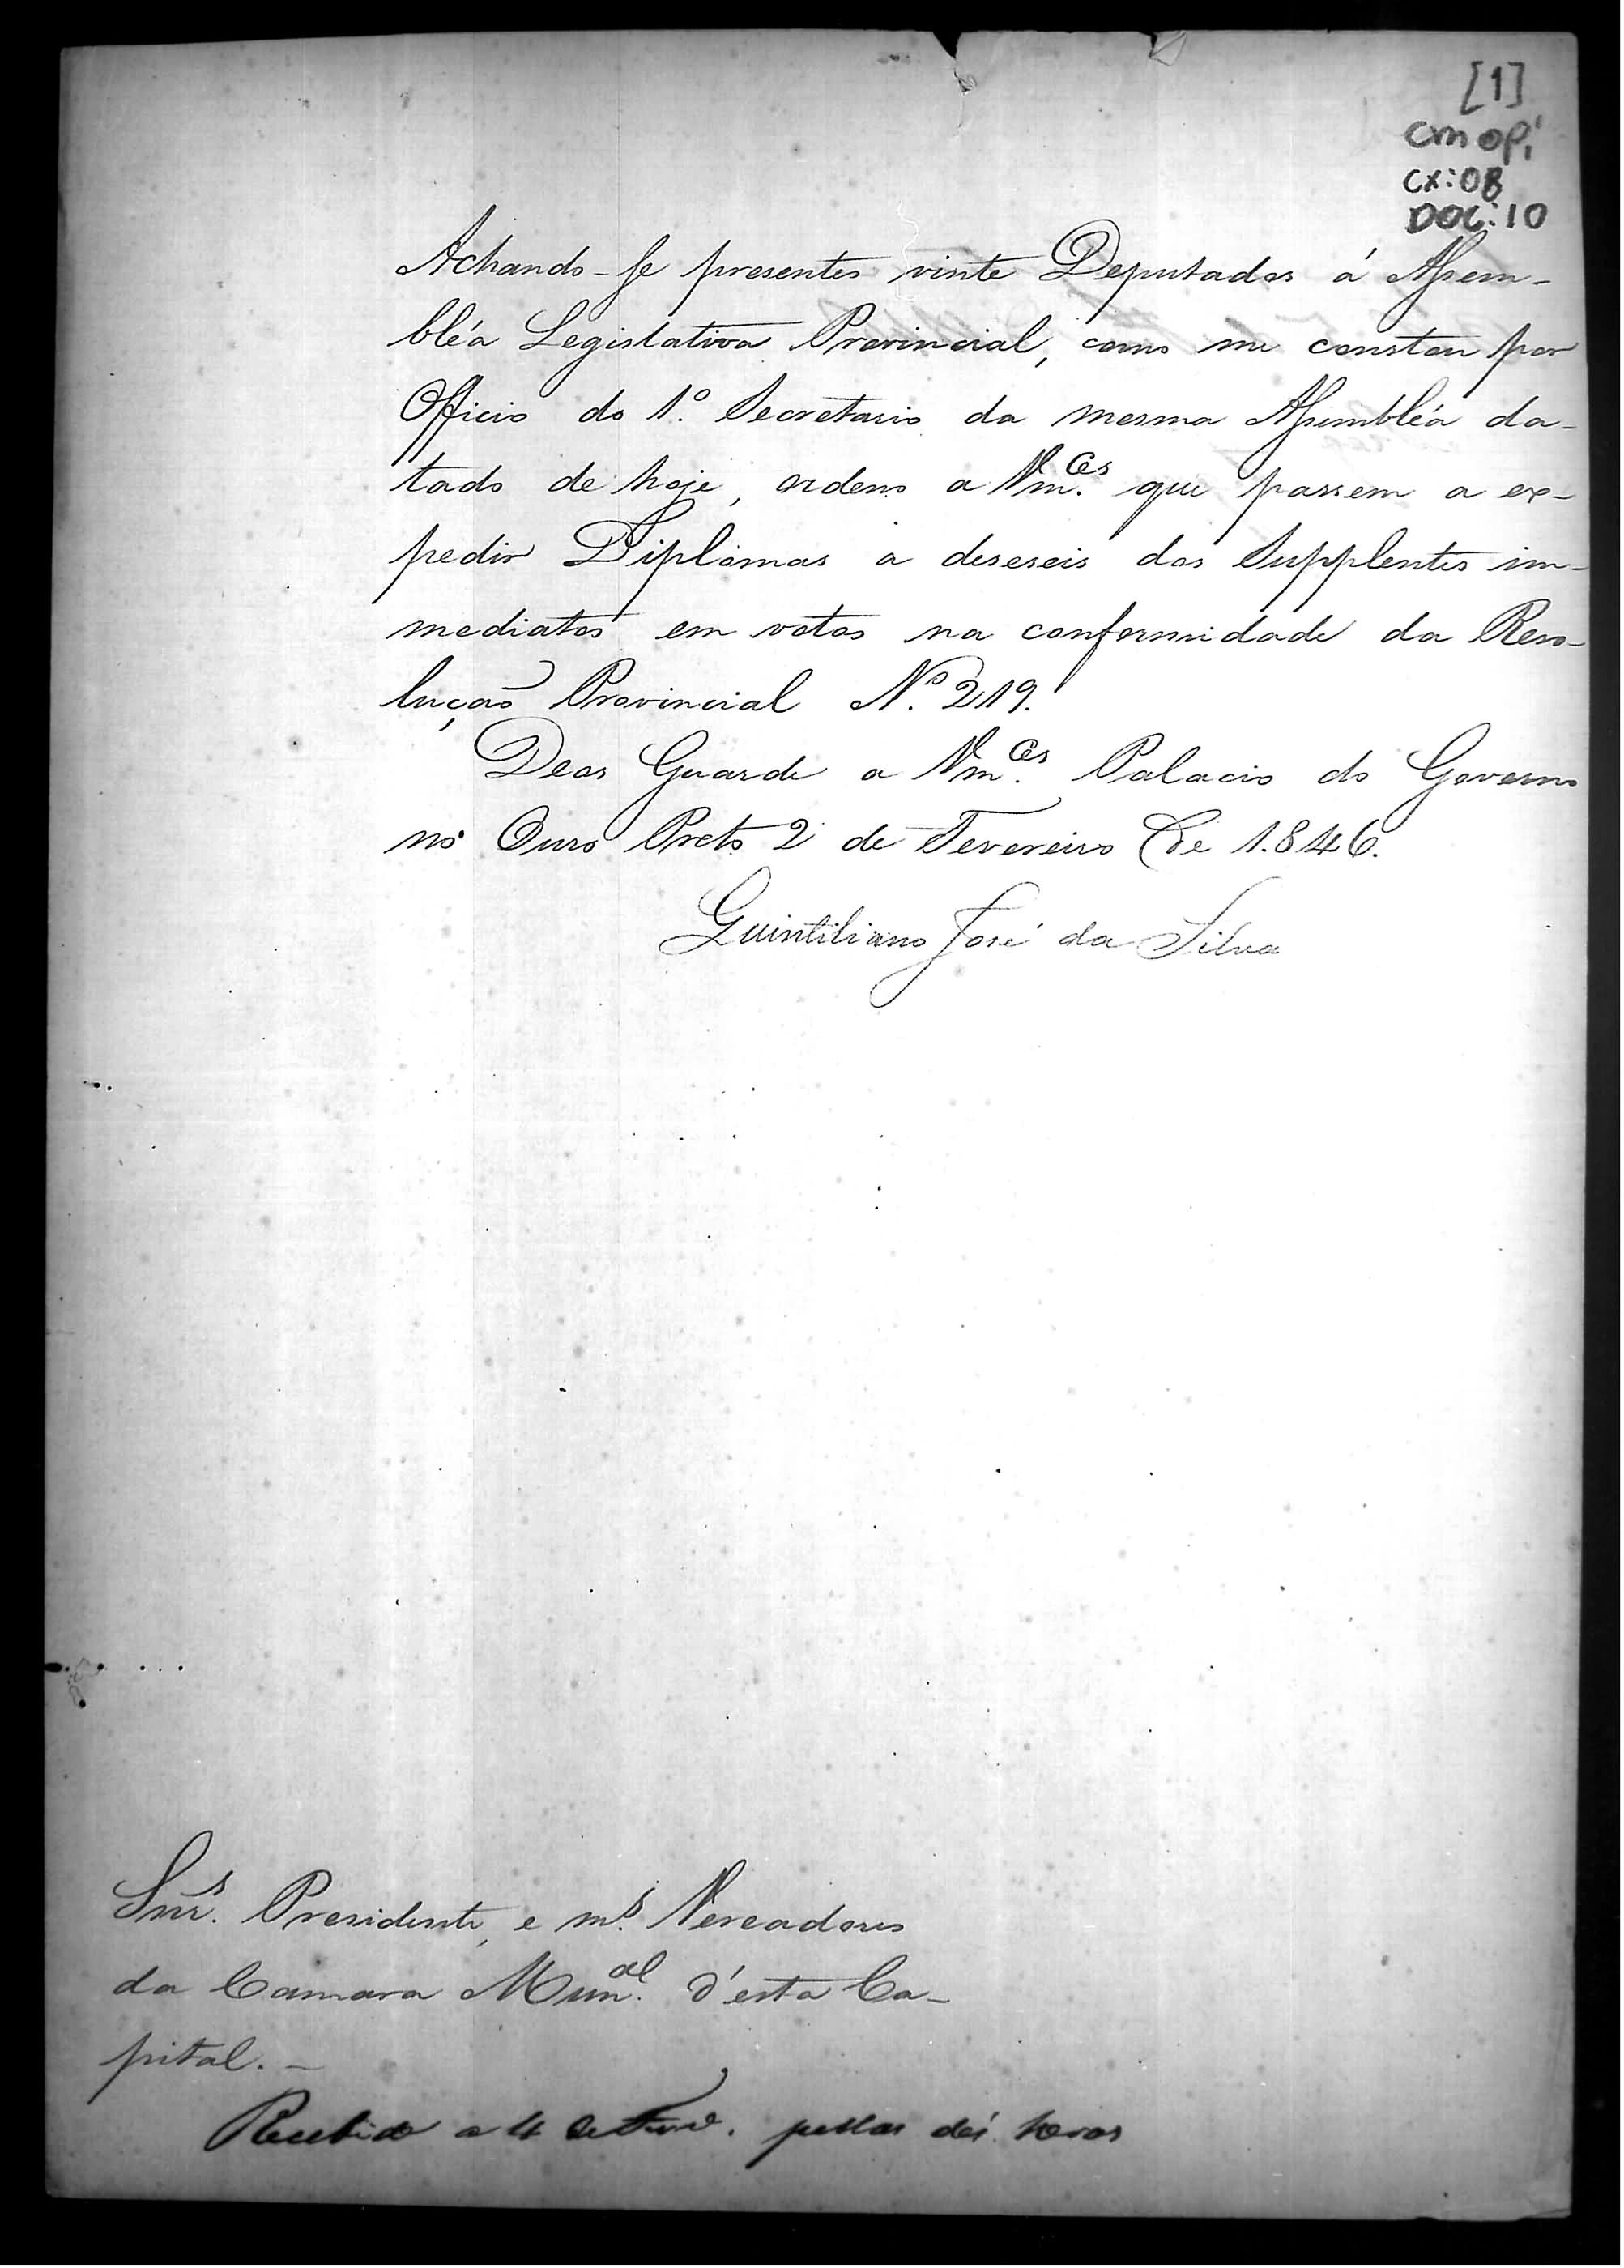 [1]
CMOPi
CX:08
DOC:10
Achando-se presentes vinte Deputados á Assem-
bléa Legislativa Provincial, como me constou por
Officio do 1.º Secretario da mesma Assembléa da-
tado de hoje, ordeno a Vm.ces que passem a ex-
pedir Diplomas a deseseis dos Supplentes im-
mediatos em votos na conformidade da Reso-
lução Provincial N.º 219.
Deos Guarde a Vm.ces Palacio do Governo
no Ouro Preto 2 de Fevereiro de 1.846.
Quintiliano José da Silva
Snr.s Presidente, e m.s Vereadores
da Camara Mun.al d'esta Ca-
pital.-
Recebido a 4 de Fevr.o. pellas horas